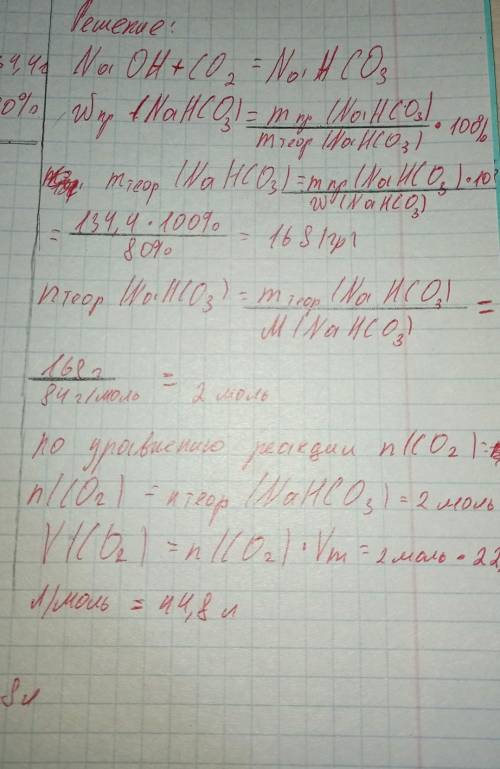 Решение:
4,4г
NaOH + CO₂ = NaHCO₃
0%
Wпр (NaHCO₃) = mпр (NaHCO₃) / mтеор (NaHCO₃) · 100%
mтеор (NaHCO₃) = mпр (NaHCO₃) · 10 / W (NaHCO₃)
= 134,4 · 100% / 80% = 168 (гр)
nтеор (NaHCO₃) = mтеор (NaHCO₃) / M (NaHCO₃) =
168г / 84 г/моль = 2 моль
по уравнению реакции n(CO₂) =
n(CO₂) = nтеор (NaHCO₃) = 2 моль
V(CO₂) = n(CO₂) · Vm = 2 моль · 22,
л/моль = 44,8 л
8 л